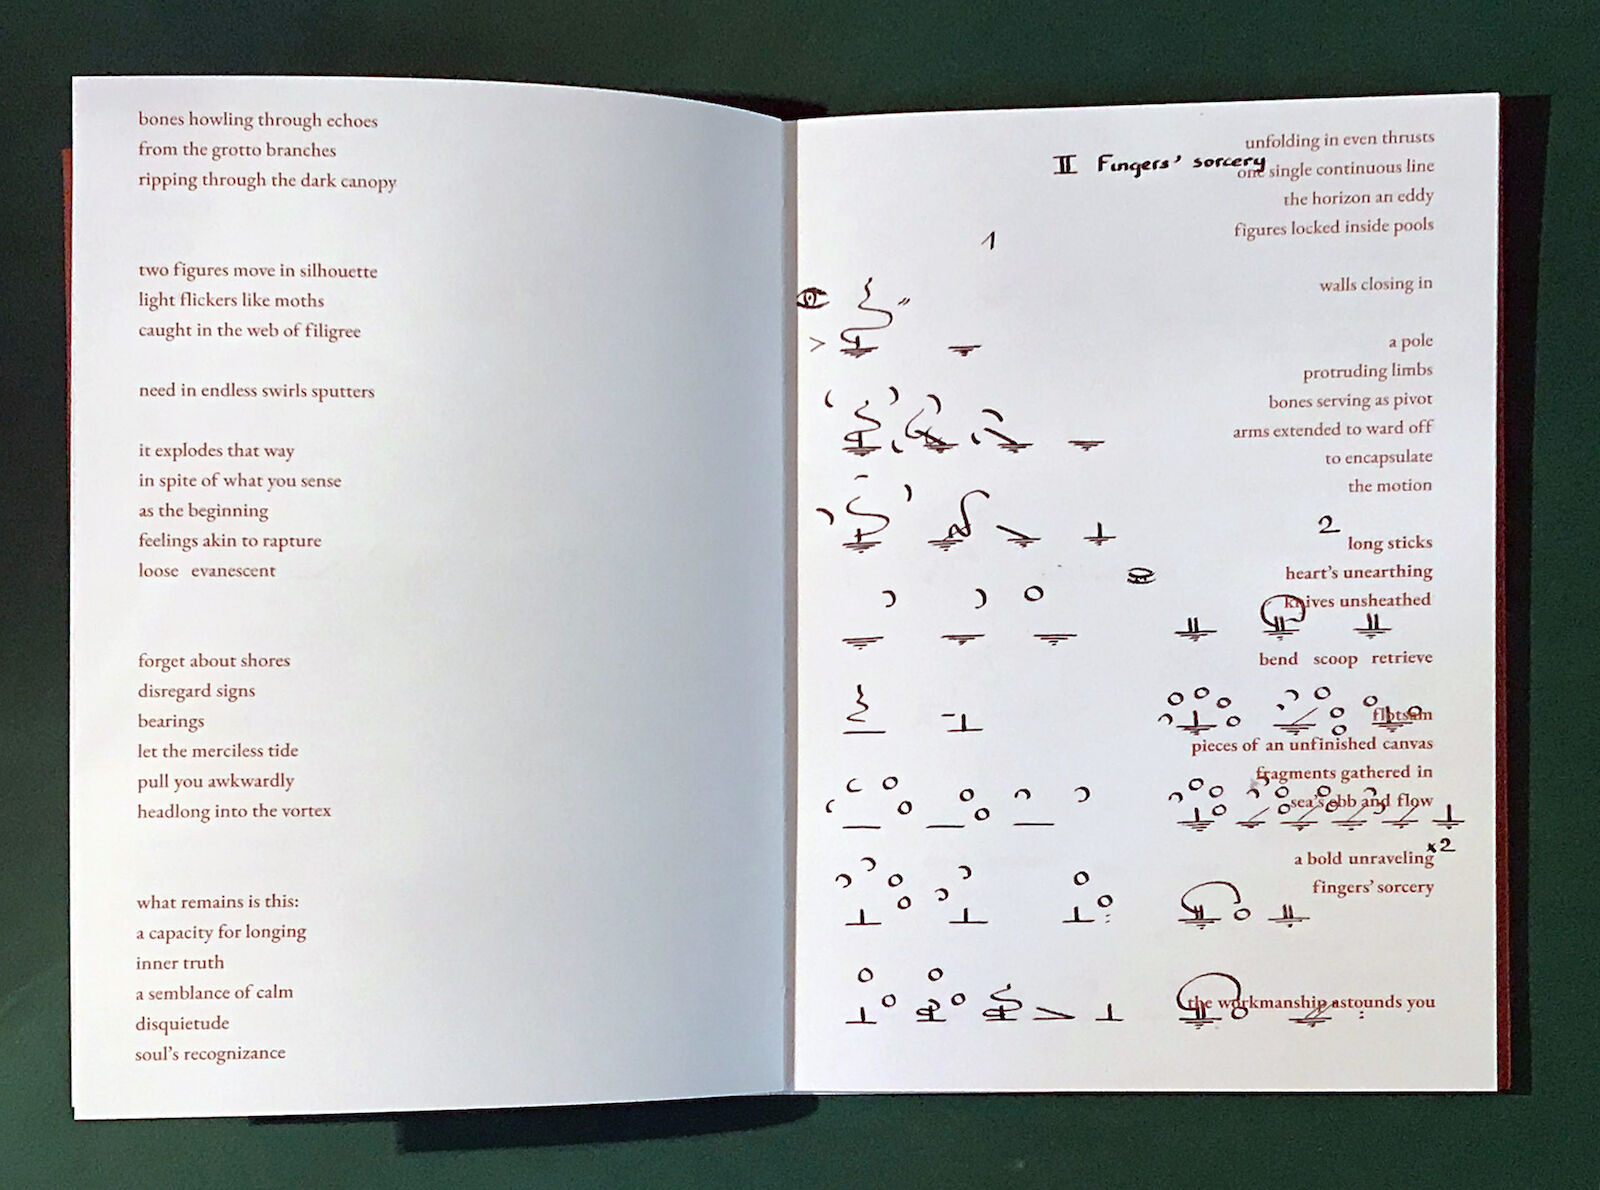 bones howling through echoes
from the grotto branches
ripping through the dark canopy
two figures move in silhouette
light flickers like moths
caught in the web of filigree
need in endless swirls sputters
it explodes that way
in spite of what you sense
as the beginning
feelings akin to rapture
loose evanescent
forget about shores
disregard signs
bearings
let the merciless tide
pull you awkwardly
headlong into the vortex
what remains is this:
a capacity for longing
inner truth
a semblance of calm
disquietude
soul's recognizance
II Fingers' sorcery
1
unfolding in even thrusts
one single continuous line
the horizon an eddy
figures locked inside pools
walls closing in
a pole
protruding limbs
bones serving as pivot
arms extended to ward off
to encapsulate
the motion
2
long sticks
heart's unearthing
knives unsheathed
bend scoop retrieve
flotsam
pieces of an unfinished canvas
fragments gathered in
sea's ebb and flow
x2
a bold unraveling
fingers' sorcery
the workmanship astounds you